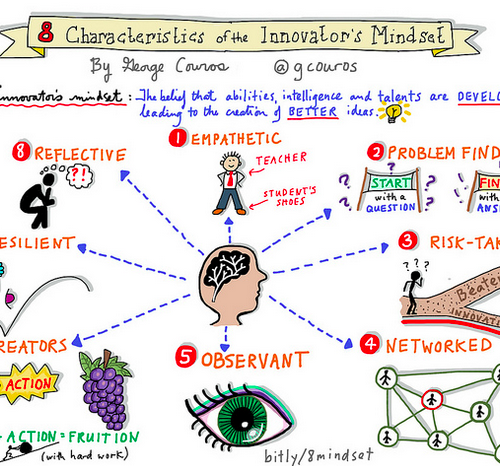 8 Characteristics of the Innovator's Mindset
By George Couros @gcouros
Innovator's mindset: The belief that abilities, intelligence and talents are DEVELO
leading to the creation of BETTER ideas.
1 EMPATHETIC
TEACHER
STUDENT'S
SHOES
2 PROBLEM FIND
START
with a
QUESTION
FIN
with
ANS
3 RISK-TAK
???
Beate
INNOVATI
4 NETWORKED
5 OBSERVANT
bitly/8mindset
REATORS
ACTION
+ ACTION = FRUITION
(with hard work)
ESILIENT
8 REFLECTIVE
?!